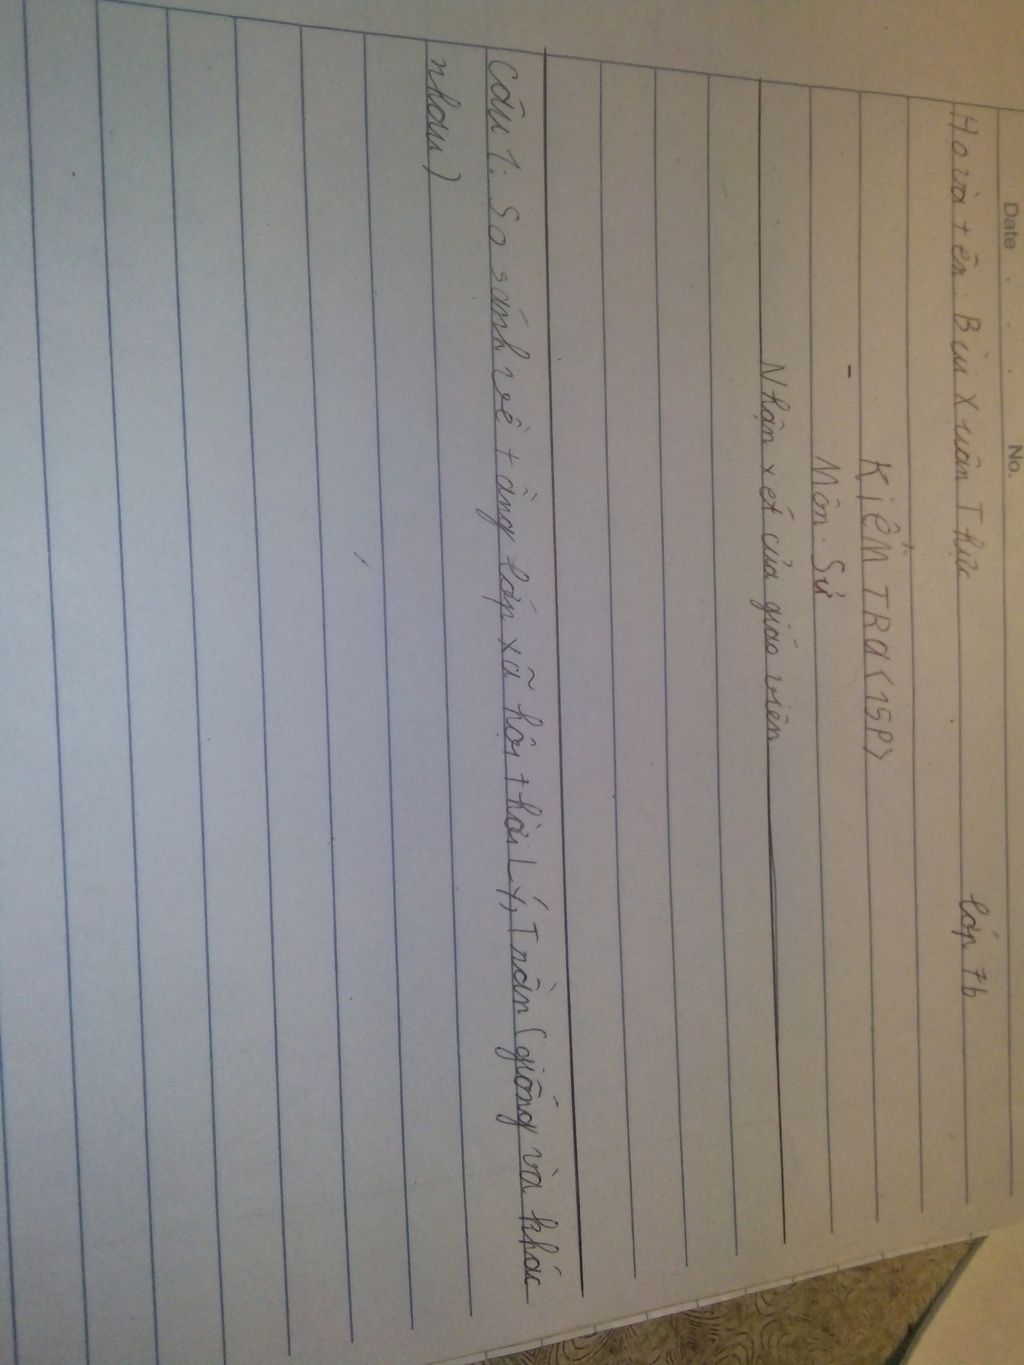 Date No.
Họ và tên. Bùi Xuân Thức lớp 7b
KIỂM TRA (15P)
Môn. Sử
Nhận xét của giáo viên
Câu 1: So sánh về tầng lớp xã hội thời Lý, Trần (giống và khác
nhau)